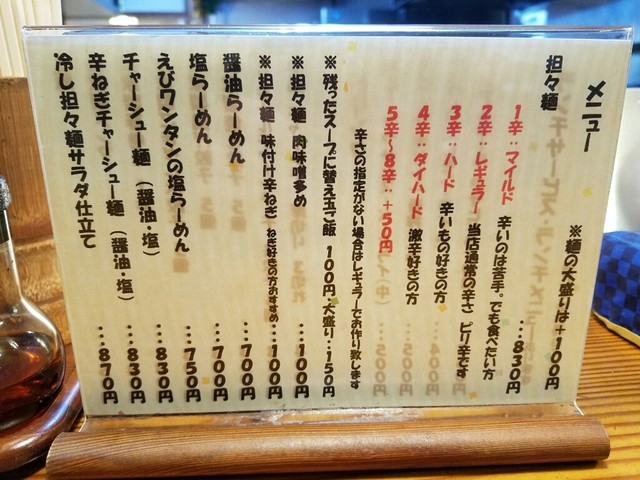 メニュー
※麺の大盛りは+100円
担々麺 ‥830円
1辛‥マイルド 辛いのは苦手。でも食べたい方
2辛‥レギュラー 当店通常の辛さ ピリ辛です
3辛‥ハード 辛いもの好きの方
4辛‥ダイハード 激辛好きの方
5辛～8辛‥+50円
辛さの指定がない場合はレギュラーでお作り致します
※残ったスープに替え玉ご飯 100円 大盛り‥150円
※担々麺 肉味噌多め ‥100円
※担々麺 味付け辛ねぎ ねぎ好きの方おすすめ‥100円
醤油らーめん ‥700円
塩らーめん ‥700円
えびワンタンの塩らーめん ‥750円
チャーシュー麺（醤油・塩） ‥830円
辛ねぎチャーシュー麺（醤油・塩） ‥830円
冷し担々麺サラダ仕立て ‥870円